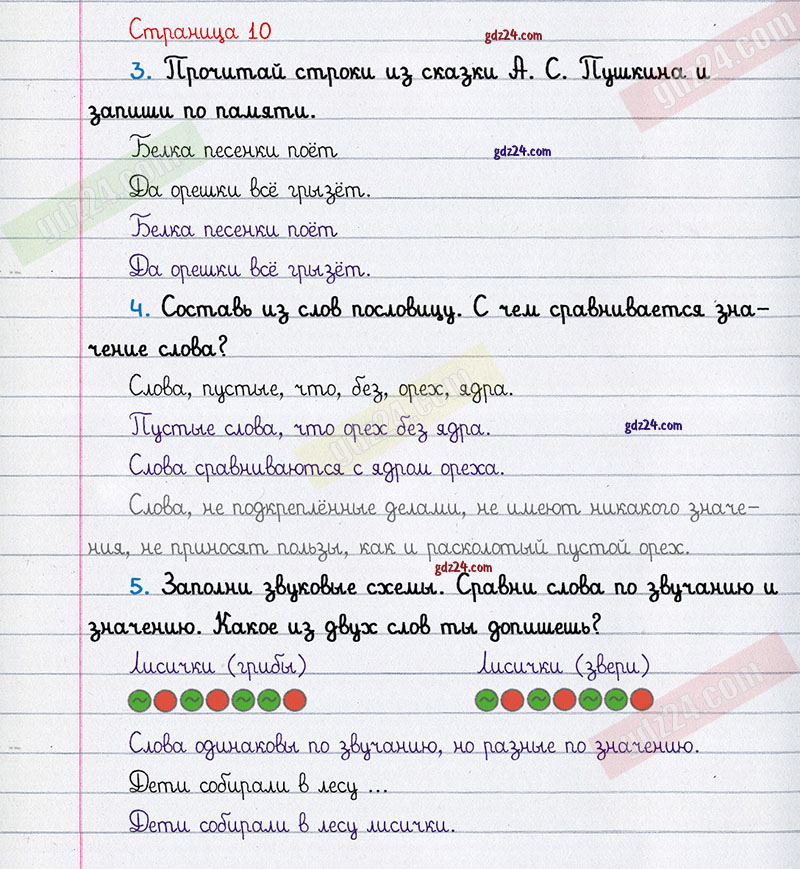 Страница 10
gdz24.com
gdz24.com
3. Прочитай строки из сказки А. С. Пушкина и
запиши по памяти.
Белка песенки поёт
gdz24.com
Да орешки всё грызёт.
gdz24.com
Белка песенки поёт
Да орешки всё грызёт.
4. Составь из слов пословицу. С чем сравнивается зна-
чение слова?
Слова, пустые, что, без, орех, ядра.
gdz24.com
Пустые слова, что орех без ядра.
gdz24.com
Слова сравниваются с ядром ореха.
Слова, не подкреплённые делами, не имеют никакого значе-
ния, не приносят пользы, как и расколотый пустой орех.
gdz24.com
5. Заполни звуковые схемы. Сравни слова по звучанию и
значению. Какое из двух слов ты допишешь?
Лисички (грибы)
Лисички (звери)
gdz24.com
Слова одинаковы по звучанию, но разные по значению.
Дети собирали в лесу ...
Дети собирали в лесу лисички.